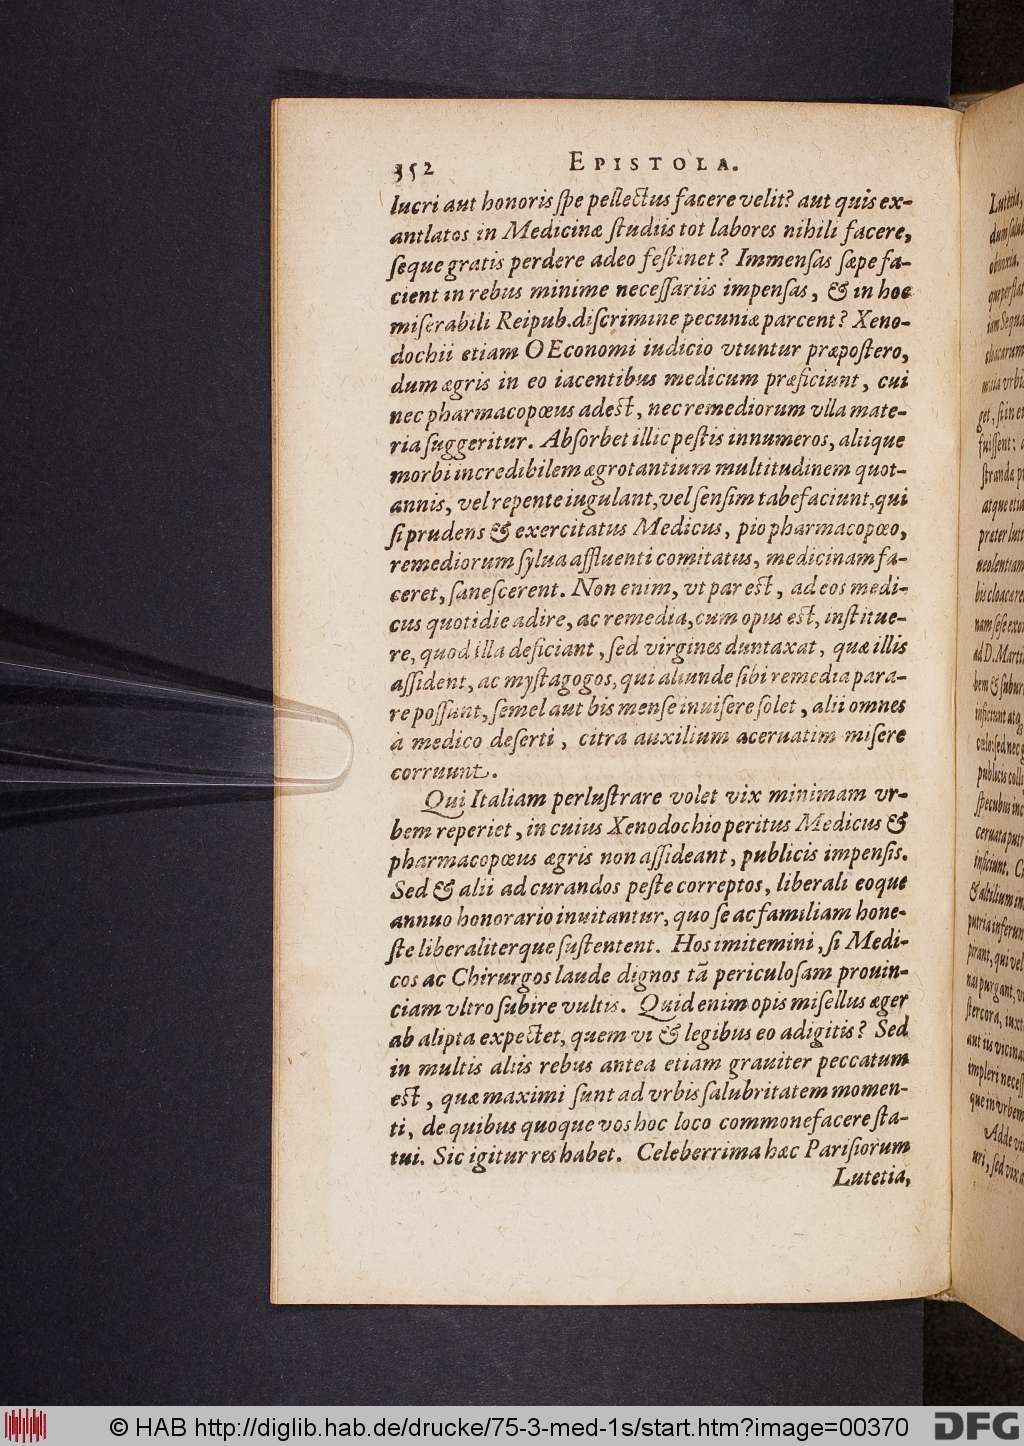 352 EPISTOLA.
lucri aut honoris ſpe pellectus facere velit? aut quis ex-
antlatos in Medicinæ ſtudiis tot labores nihili facere,
ſeque gratis perdere adeo feſtinet? Immenſas ſæpe fa-
cient in rebus minime neceſſariis impenſas, & in hoc
miſerabili Reipub. diſcrimine pecuniæ parcent? Xeno-
dochii etiam OEconomi iudicio vtuntur præpoſtero,
dum ægris in eo iacentibus medicum præficiunt, cui
nec pharmacopœus adest, nec remediorum vlla mate-
ria ſuggeritur. Abſorbet illic peſtis innumeros, aliique
morbi incredibilem ægrotantium multitudinem quot-
annis, vel repente iugulant, vel ſenſim tabefaciunt, qui
ſi prudens & exercitatus Medicus, pio pharmacopœo,
remediorum ſylua affluenti comitatus, medicinam fa-
ceret, ſaneſcerent. Non enim, vt par est, ad eos medi-
cus quotidie adire, ac remedia, cum opus est, inſtitue-
re, quod illa deficiant, ſed virgines duntaxat, quæ illis
aſſident, ac myſtagogos, qui aliunde ſibi remedia para-
re poſſunt, ſemel aut bis menſe inuiſere ſolet, alii omnes
à medico deſerti, citra auxilium aceruatim miſere
corruunt.
Qui Italiam perluſtrare volet vix minimam vr-
bem reperiet, in cuius Xenodochio peritus Medicus &
pharmacopœus ægris non aſſideant, publicis impenſis.
Sed & alii ad curandos peſte correptos, liberali eoque
annuo honorario inuitantur, quo ſe ac familiam hone-
ſte liberaliterque ſuſtentent. Hos imitemini, ſi Medi-
cos ac Chirurgos laude dignos tā periculoſam prouin-
ciam vltro ſubire vultis. Quid enim opis miſellus æger
ab alipta expectet, quem vi & legibus eo adigitis? Sed
in multis aliis rebus antea etiam grauiter peccatum
est, quæ maximi ſunt ad vrbis ſalubritatem momen-
ti, de quibus quoque vos hoc loco commonefacere ſta-
tui. Sic igitur res habet. Celeberrima hæc Pariſiorum
Lutetia,
Lutetia,
dum ſalub
obnoxia.
que perſtat
iam Sequa
cloacarum
maia vrbi
get, ſi in et
fuiſſent: a
ſtranda p
atque etia
præter luti
neolentiam
bis cloacare
nam ſeſe exo
ad D. Marti
bem & ſubur
inficiunt atq
culo: ſed nec
publicis coll
ſpecubus inc
ceruata putr
inficiunt. C
& altilium in
putria inferun
pirant, qui vel
nas purgant, v
ſtercora, iuxt
aut iis vicina
impleri neceſſ
que in vrbem
Adde vi
uri, ſed vix a
© HAB http://diglib.hab.de/drucke/75-3-med-1s/start.htm?image=00370 DFG